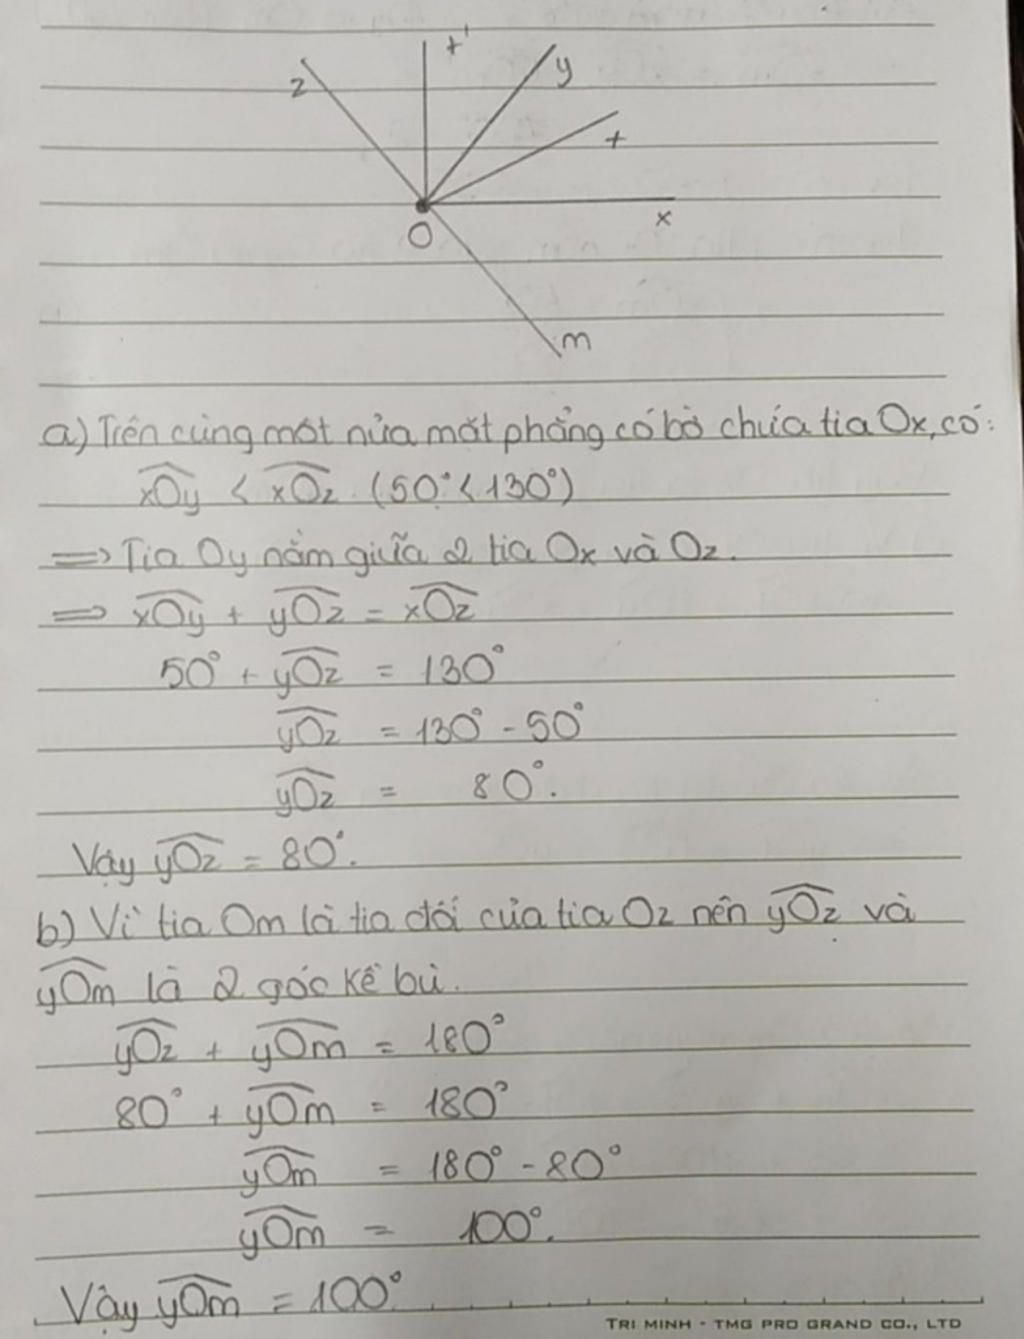 z
t'
y
t
x
O
m
a) Trên cùng một nửa mặt phẳng có bờ chứa tia Ox, có:
xÔy < xÔz (50° < 130°)
=> Tia Oy nằm giữa 2 tia Ox và Oz.
=> xÔy + yÔz = xÔz
50° + yÔz = 130°
yÔz = 130° - 50°
yÔz = 80°.
Vậy yÔz = 80°.
b) Vì tia Om là tia đối của tia Oz nên yÔz và
yÔm là 2 góc kề bù.
yÔz + yÔm = 180°
80° + yÔm = 180°
yÔm = 180° - 80°
yÔm = 100°.
Vậy yÔm = 100°
TRI MINH - TMG PRO GRAND CO., LTD